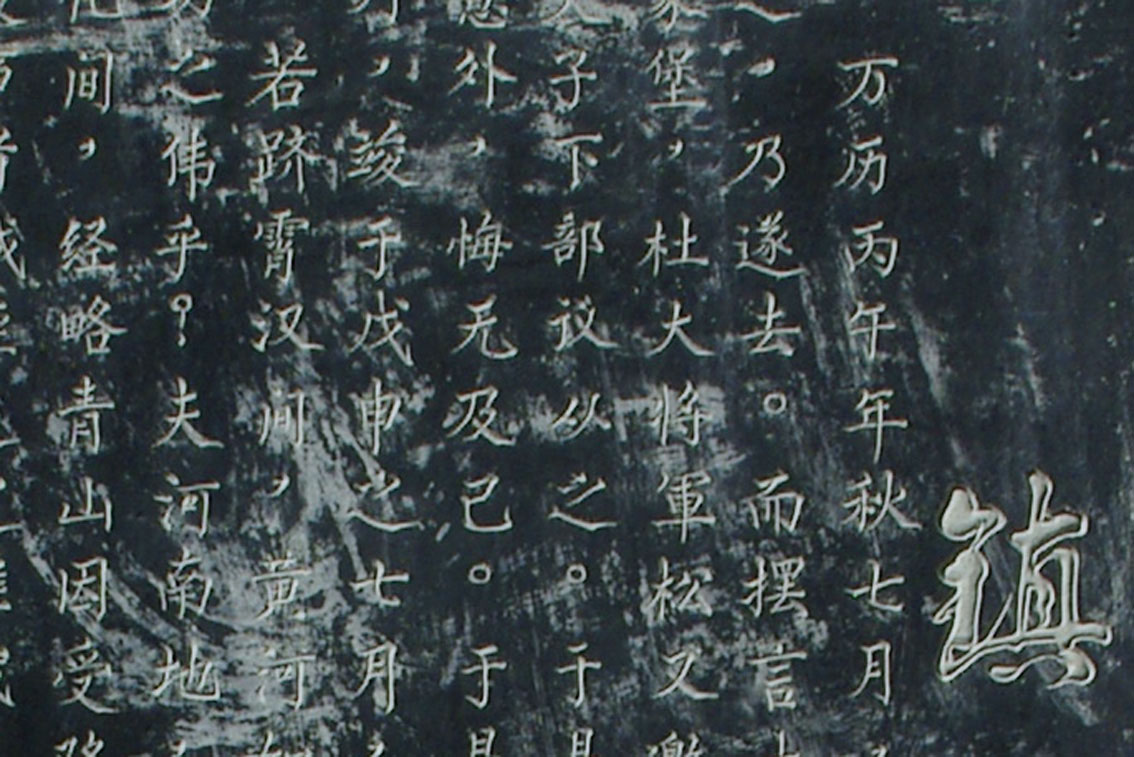 鎮
万历丙午年秋七月，
，乃遂去。而摆言
家堡，杜大将軍松又邀
天子下部议从之。于是
意外，悔无及已。于是
，竣于戊申之七月，
若跻霄汉间，黄河如
之伟乎？夫河南地，
间，经略青山因受